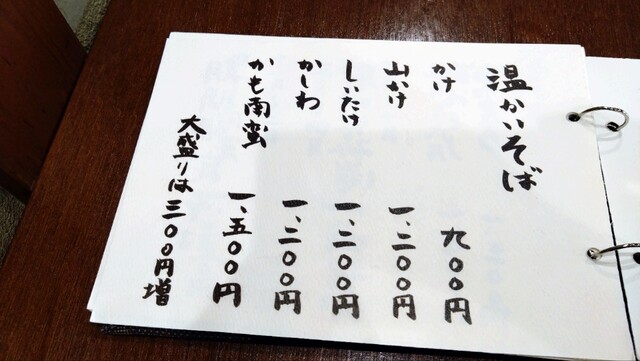 温かいそば
かけ 九〇〇円
山かけ 一、二〇〇円
しいたけ 一、二〇〇円
かしわ 一、二〇〇円
かも南蛮 一、五〇〇円
大盛りは三〇〇円増